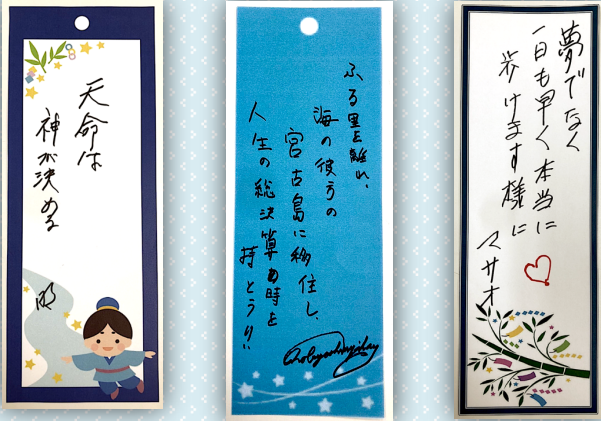 天命は
神が決める
ふる里を離れ、
海の彼方の
宮古島に移住し、
人生の総決算の時を
夢でなく
一日も早く本当に
歩けます様に
マサオ